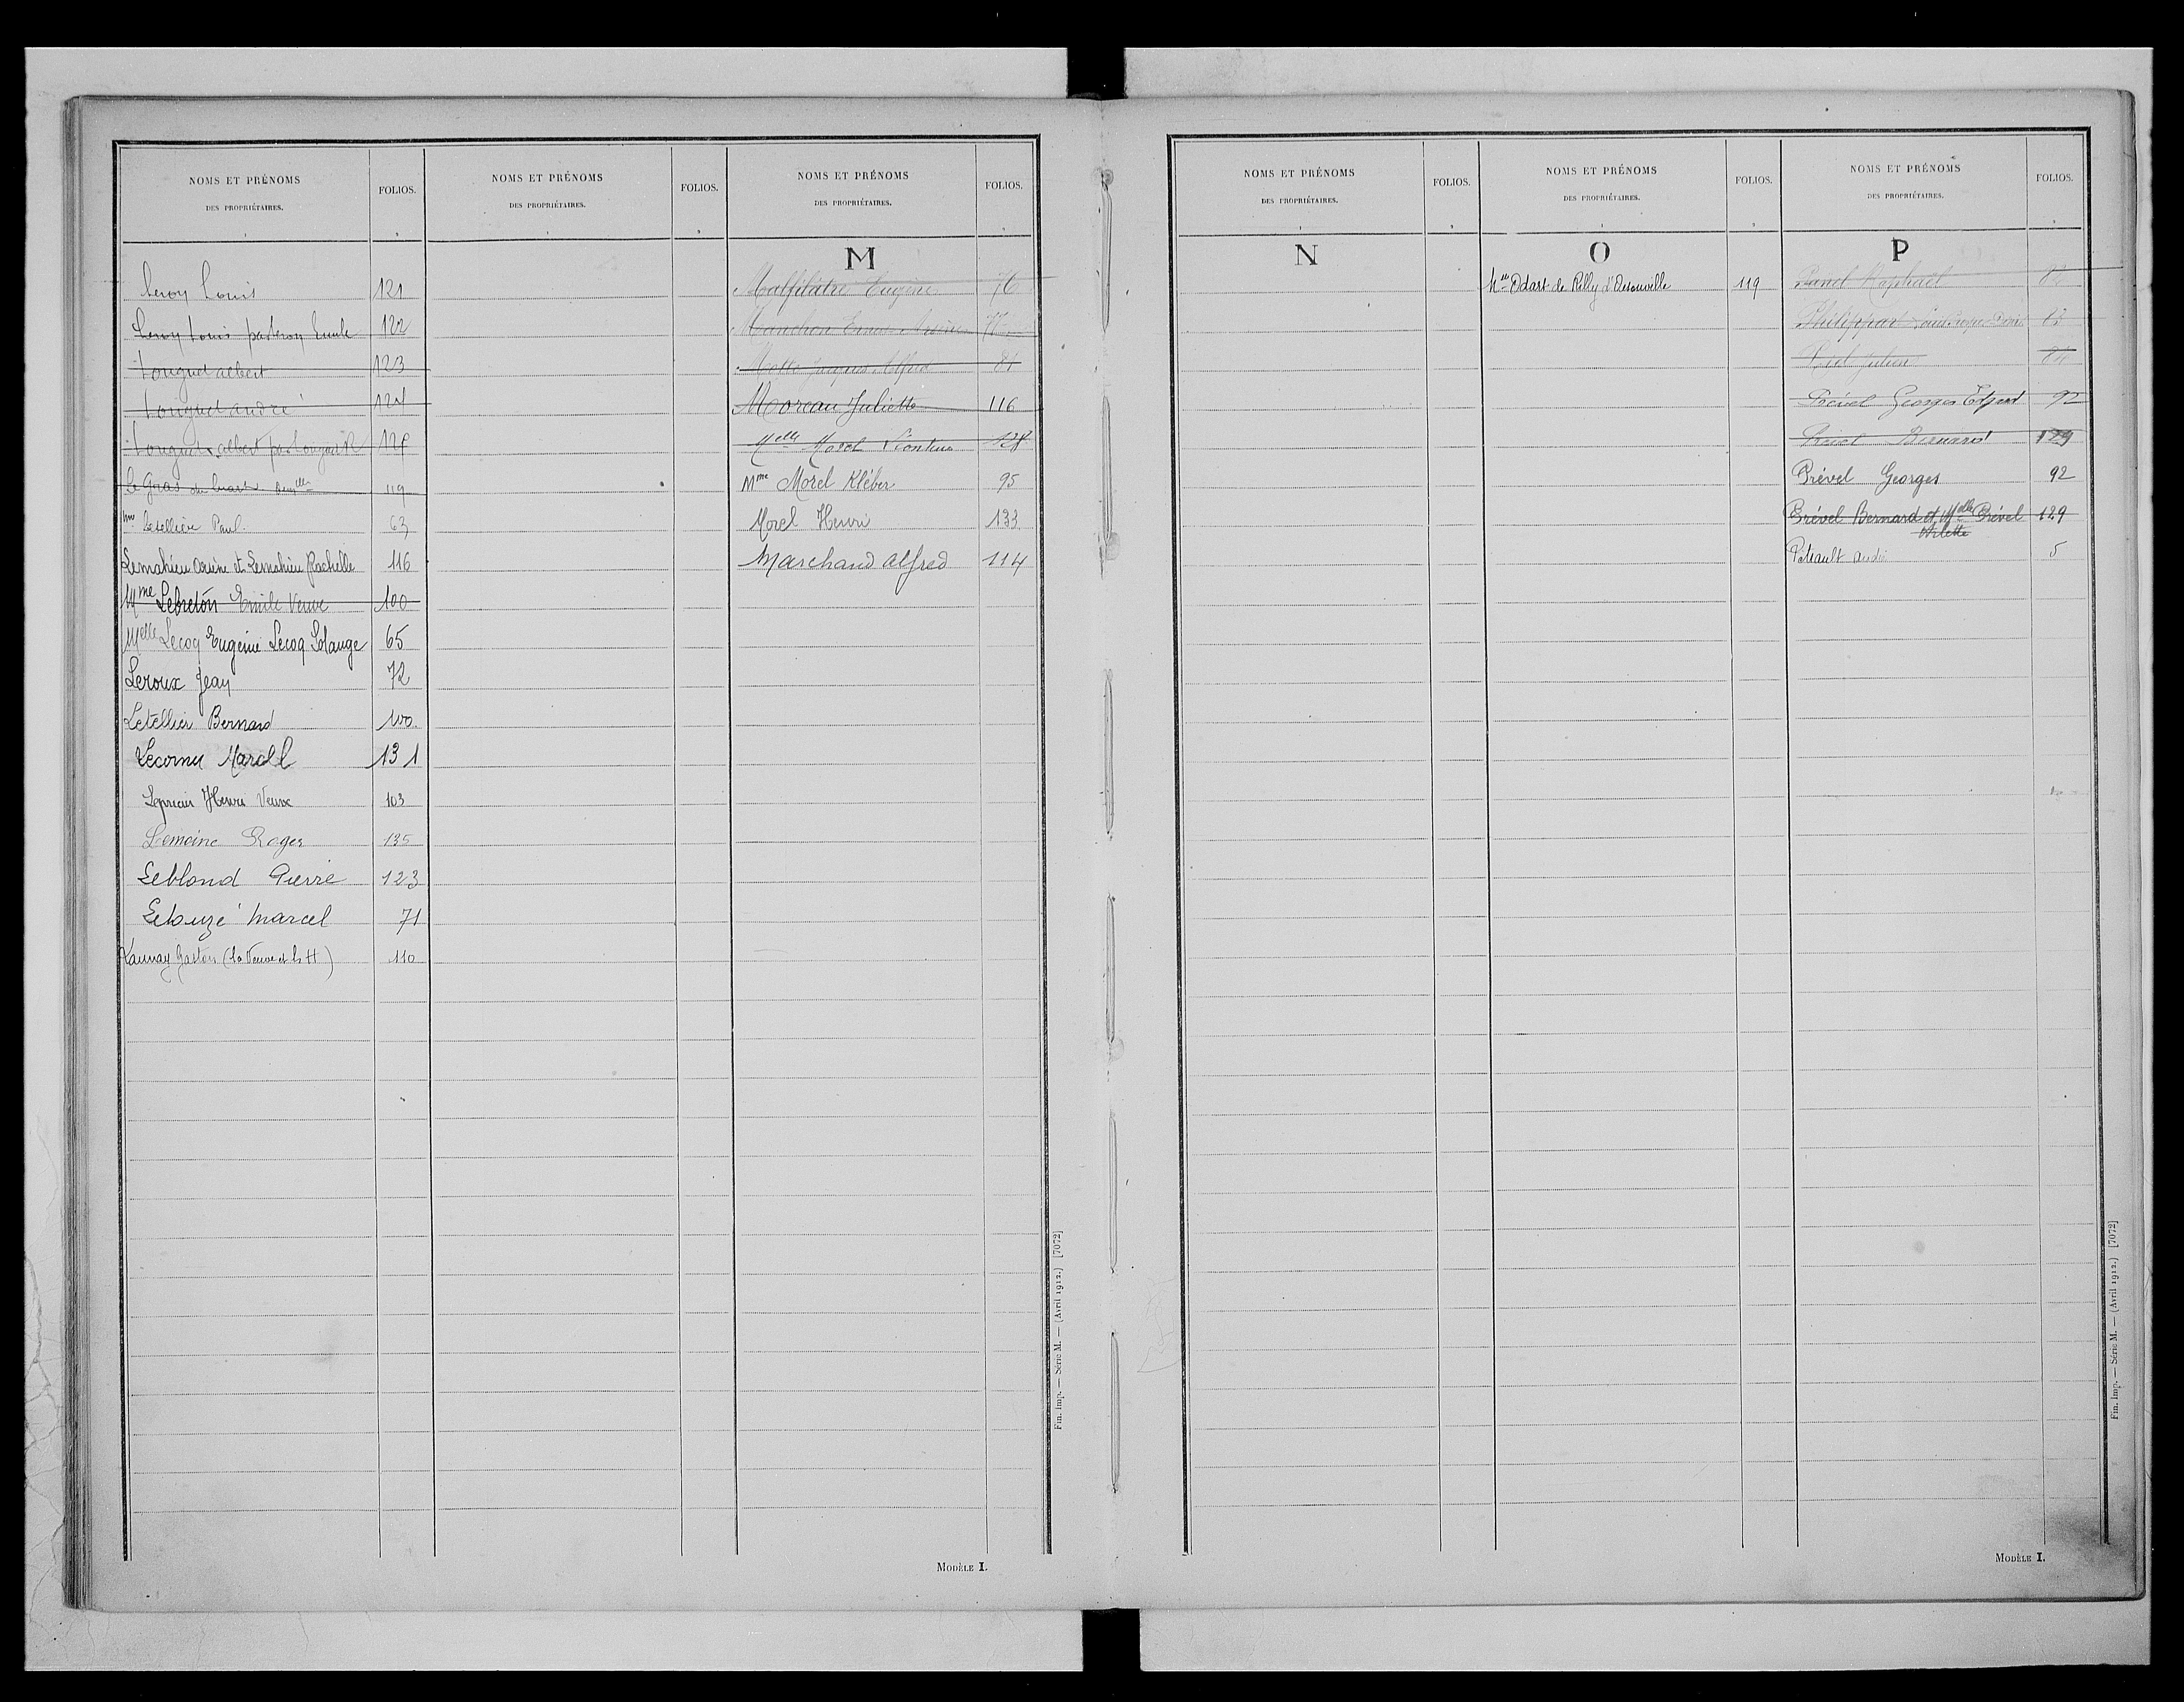 NOMS ET PRÉNOMS
DES PROPRIÉTAIRES.
FOLIOS.
Leroy Louis 121
Leroy Louis par Leroy Emile 122
Longuet albert 123
Longuet andré 124
Longuet albert par Longuet
Le Gras du Luart 119
Mme Letellier Paul. 63
Lemahieu Arsène et Lemahieu Rachelle 116
Mme Lebreton Emile Veuve 100
Melle Lecoq Eugénie Lecoq Solange 65
Leroux Jean 72
Letellier Bernard 100
Lecornu Marcel 131
Henri Veuve 103
Lemoine Roger 135
Leblond Pierre 123
Lebuzé Marcel 71
Launay Gaston (la Veuve et les H) 110
NOMS ET PRÉNOMS
DES PROPRIÉTAIRES.
FOLIOS.
NOMS ET PRÉNOMS
DES PROPRIÉTAIRES.
FOLIOS.
M
Malfilatre Eugène 76
Manchon Arsène
Motte Jacques Alfred 81
Moreau Juliette 116
Melle Morel Léontine 128
Mme Morel Kléber 95
Morel Henri 133
Marchand alfred 114
Fin. Imp. — Série M. — (Avril 1912.) [7072]
Modèle I.
NOMS ET PRÉNOMS
DES PROPRIÉTAIRES.
FOLIOS.
N
NOMS ET PRÉNOMS
DES PROPRIÉTAIRES.
FOLIOS.
O
Odart de Rilly d'Oysonville 119
NOMS ET PRÉNOMS
DES PROPRIÉTAIRES.
FOLIOS.
P
Panel Raphaël 82
Philippar 83
Julien 84
Prével Georges Edgard 92
Prével Bernard 129
Prével Georges 92
Prével Bernard et Melle Prével 129
Arlette
Patiault André 5
Fin. Imp. — Série M. — (Avril 1912.) [7072]
Modèle I.